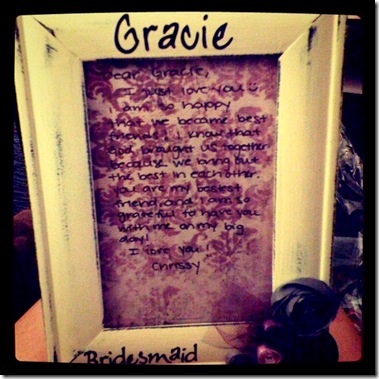 Gracie
Dear Gracie,
I just love you
I am so happy
that we became best
friends! I know that
God brought us together
because we bring out
the best in each other.
you are my bestest
friend, and I am so
grateful to have you
with me on my big
day!
I love you!
Chrissy
Bridesmaid